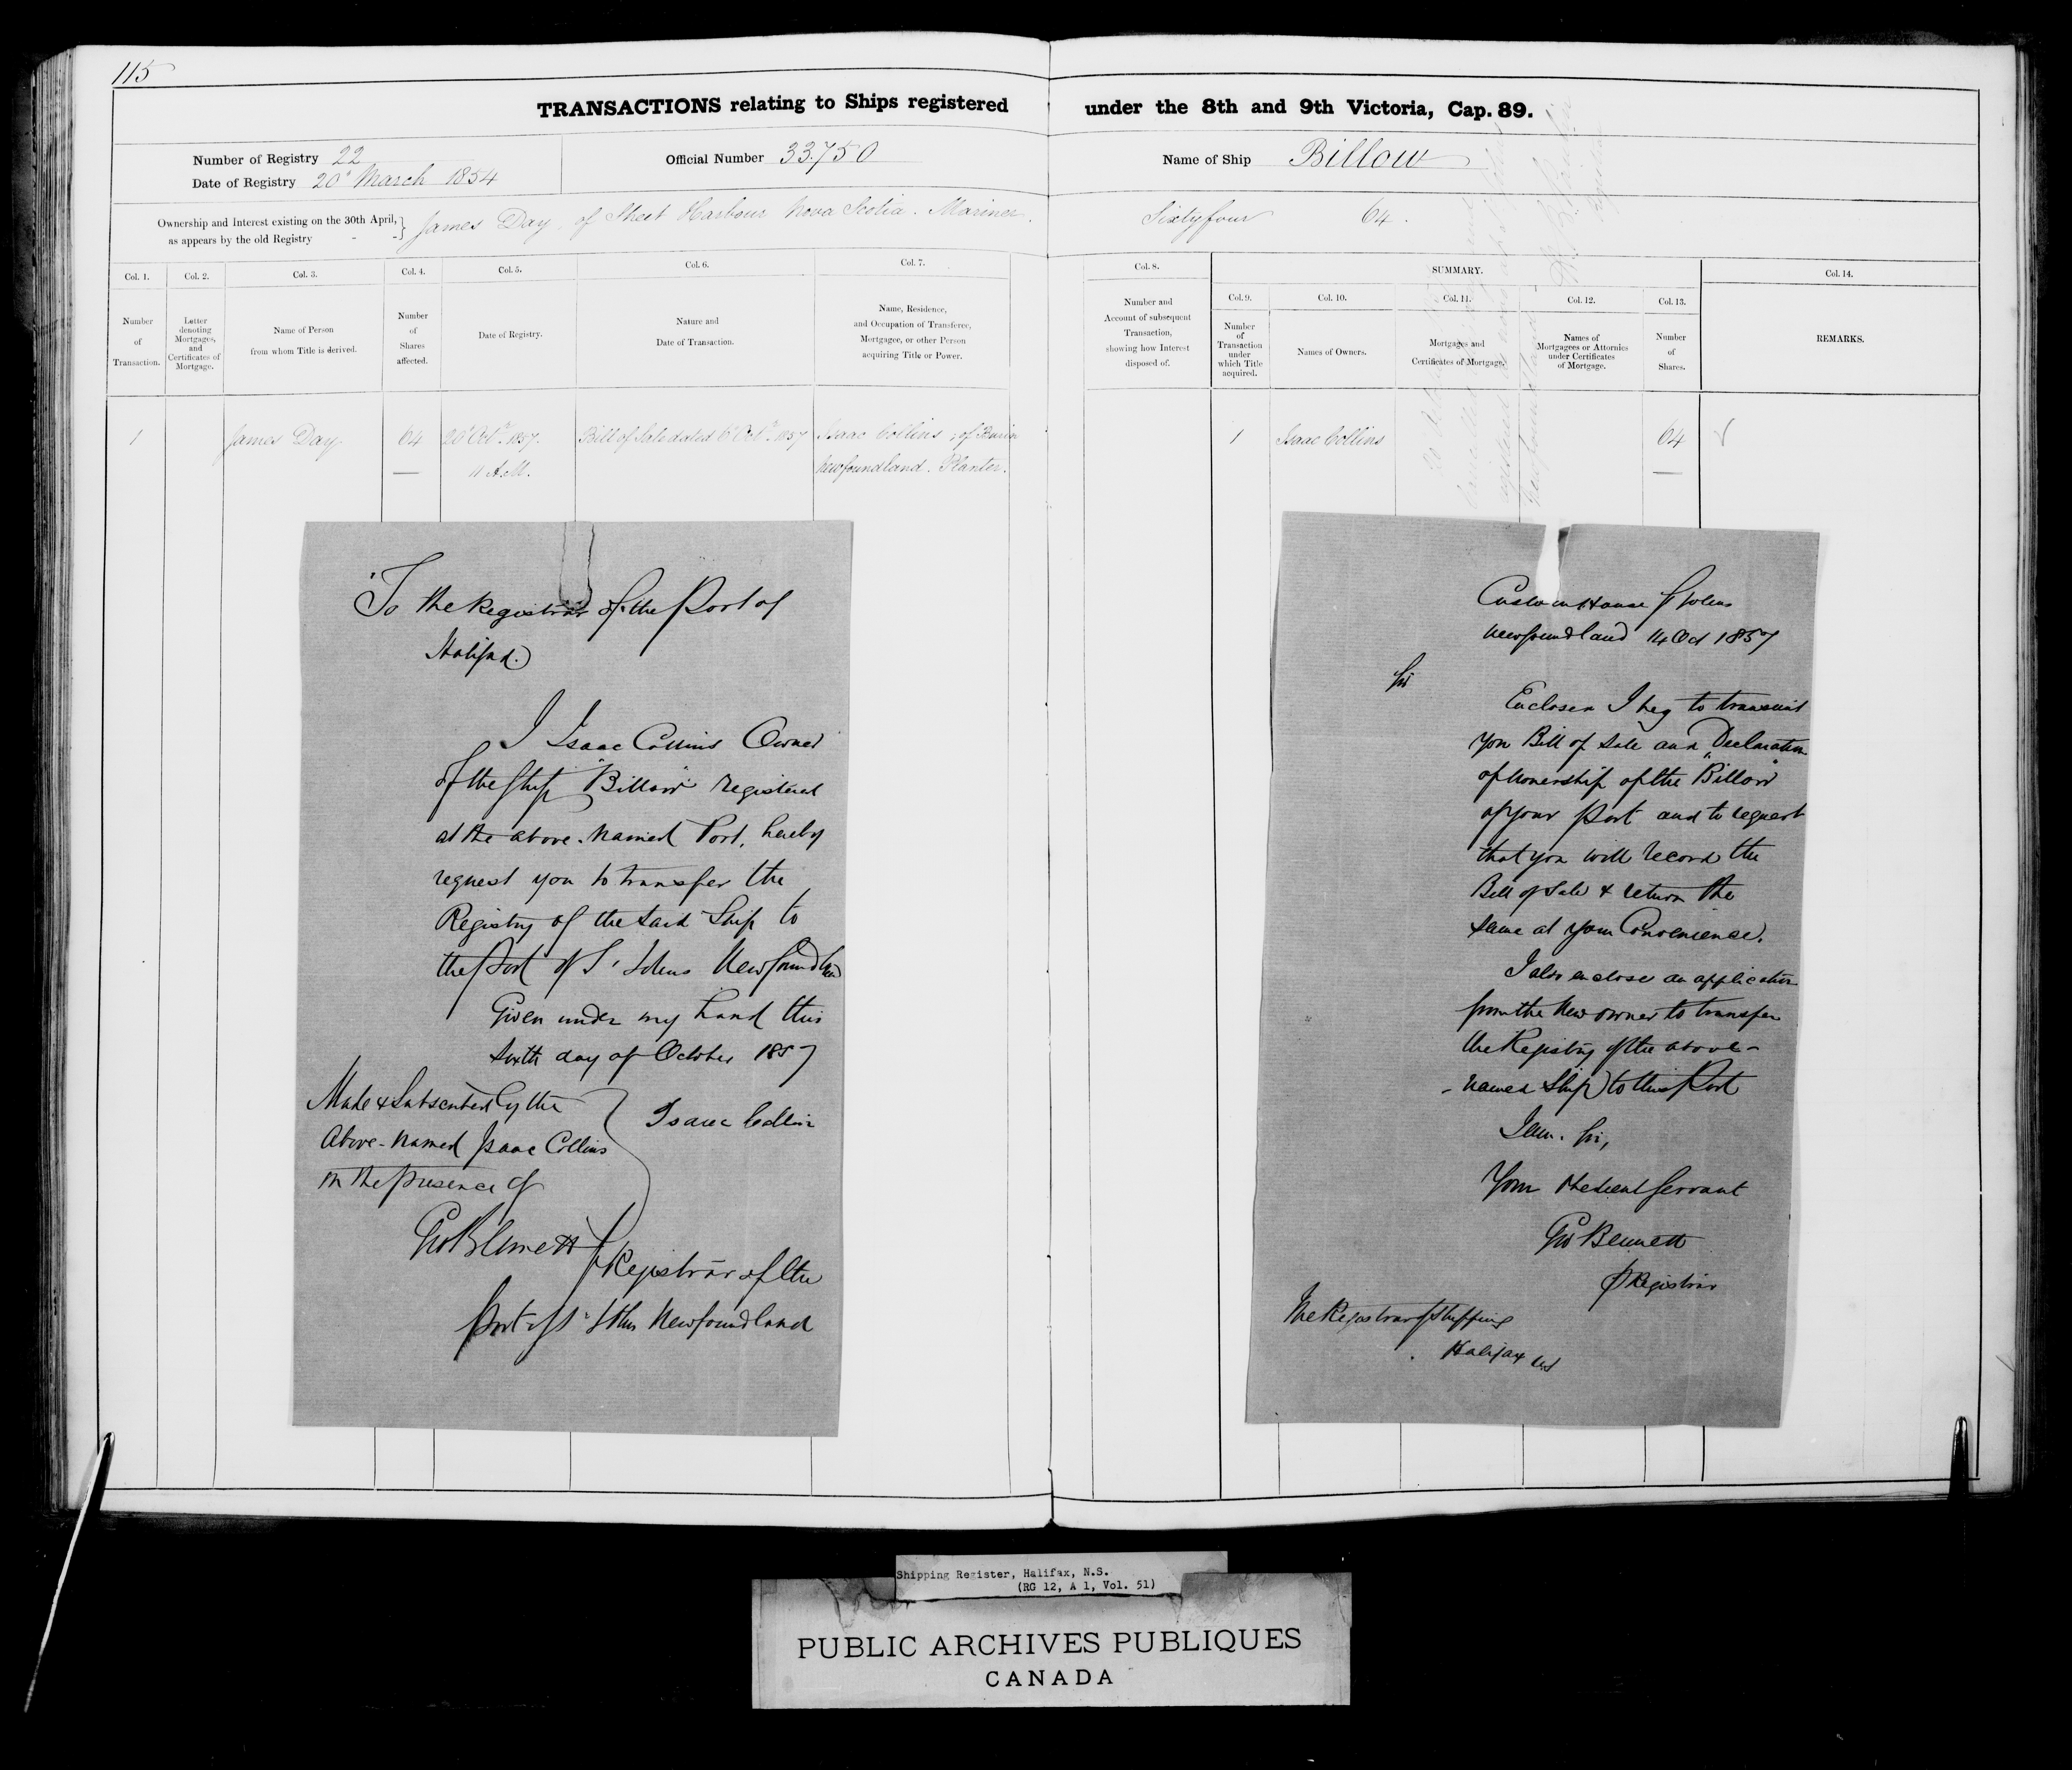 115
TRANSACTIONS relating to Ships registered under the 8th and 9th Victoria, Cap. 89.
Number of Registry 22
Date of Registry 20th March 1854
Official Number 33.750
Name of Ship Billow
Ownership and Interest existing on the 30th April, as appears by the old Registry - - } James Day, of Sheet Harbour Nova Scotia. Mariner. Sixtyfour 64.
Col. 1.
Number of Transaction.
Col. 2.
Letter denoting Mortgages, and Certificates of Mortgage.
Col. 3.
Name of Person from whom Title is derived.
Col. 4.
Number of Shares affected.
Col. 5.
Date of Registry.
Col. 6.
Nature and Date of Transaction.
Col. 7.
Name, Residence, and Occupation of Transferee, Mortgagee, or other Person acquiring Title or Power.
Col. 8.
Number and Account of subsequent Transaction, showing how Interest disposed of.
SUMMARY.
Col. 9.
Number of Transaction under which Title acquired.
Col. 10.
Names of Owners.
Col. 11.
Mortgages and Certificates of Mortgage.
Col. 12.
Names of Mortgagees or Attornies under Certificates of Mortgage.
Col. 13.
Number of Shares.
Col. 14.
REMARKS.
1 James Day 64 20th Octr. 1857. Bill of Sale dated 6th Octr. 1857 Isaac Collins, of Burin
11 A.M. Newfoundland. Planter.
1 Isaac Collins 64
To the Registrar of the Port of
Halifax.
I Isaac Collins Owner
of the Ship "Billow" registered
at the above-named Port, hereby
request you to transfer the
Registry of the said Ship to
the Port of St Johns Newfoundland
Given under my hand this
sixth day of October 1857
Made & Subscribed by the
above-named Isaac Collins
in the presence of
Isaac Collins
Geo Bennett
Registrar of the
Port of St Johns Newfoundland
Custom House St Johns
Newfoundland 14 Oct 1857
Sir
Enclosed I beg to transmit
you Bill of Sale and Declaration
of Ownership of the "Billow"
of your Port and to request
that you will record the
Bill of Sale & return the
same at your Convenience.
I also enclose an application
from the new owner to transfer
the Registry of the above-
-named Ship to this Port
I am, Sir,
Your Obedient Servant
Geo Bennett
Registrar
The Registrar of Shipping
Halifax NS
Shipping Register, Halifax, N.S.
(RG 12, A 1, Vol. 51)
PUBLIC ARCHIVES PUBLIQUES
CANADA